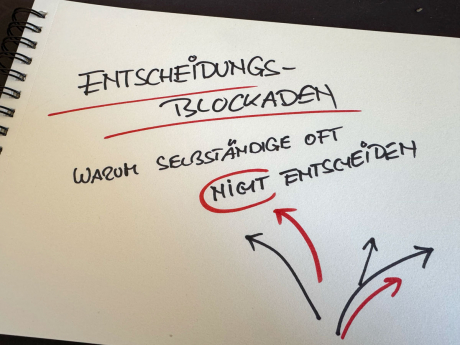 ENTSCHEIDUNGS-
BLOCKADEN
WARUM SELBSTÄNDIGE OFT
NICHT ENTSCHEIDEN